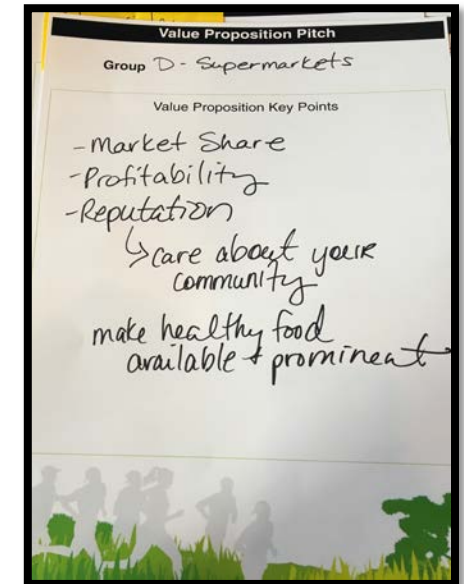 Value Proposition Pitch
Group D - Supermarkets
Value Proposition Key Points
- Market Share
- Profitability
- Reputation
↳ care about your
community
make healthy food
available + prominent